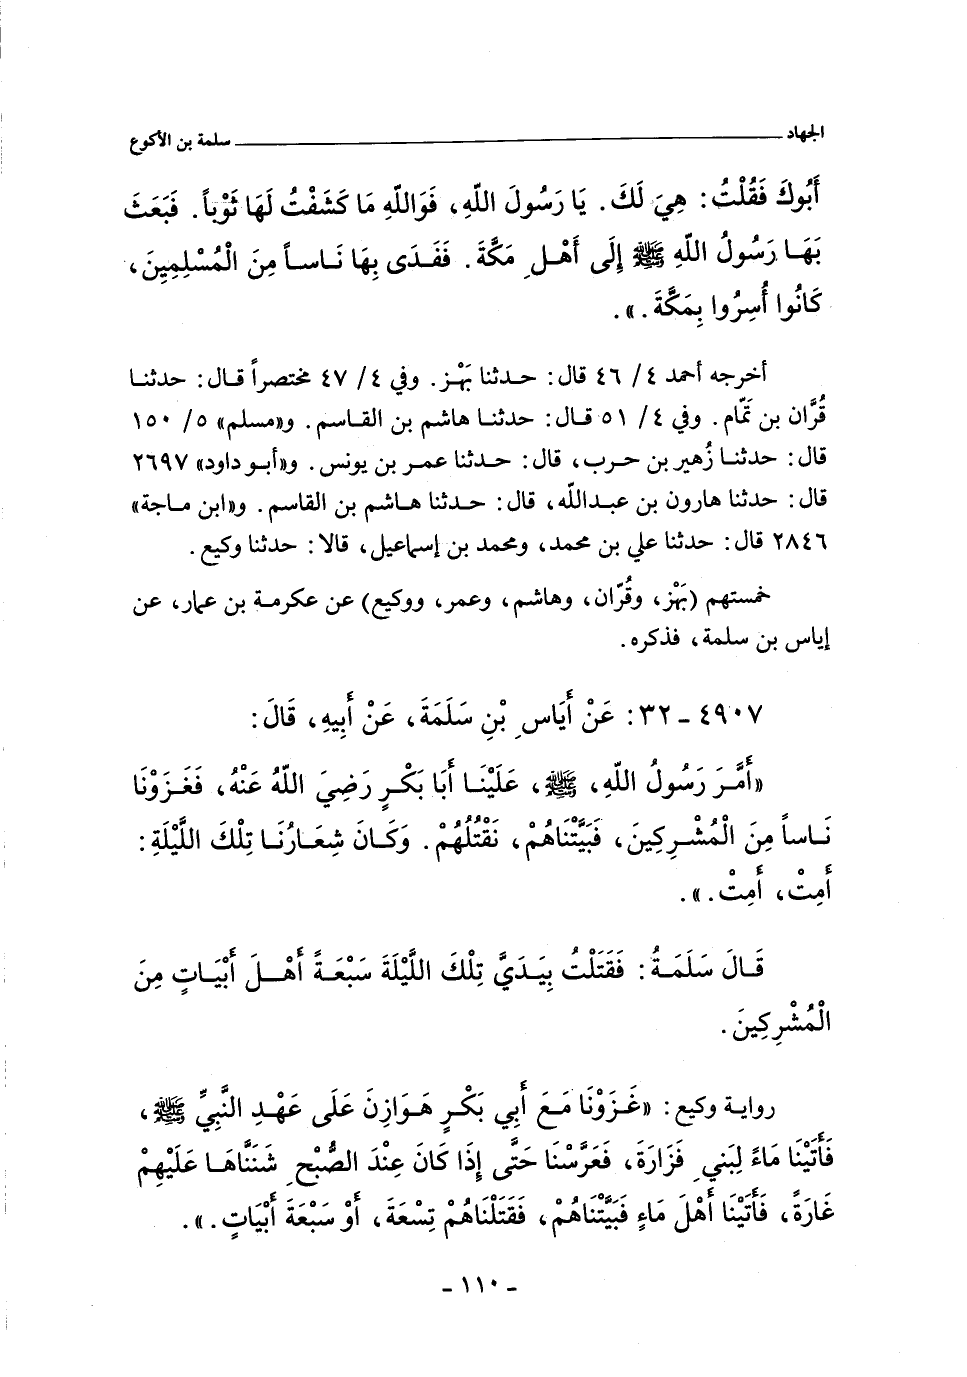 الجهاد سلمة بن الأكوع
أَبُوكَ فَقُلْتُ: هِيَ لَكَ. يَا رَسُولَ اللّهِ، فَوَاللّهِ مَا كَشَفْتُ لَهَا ثَوْباً. فَبَعَثَ
بَهَا رَسُولُ اللّهِ ﷺ إِلَى أَهْلِ مَكَّةَ. فَفَدَى بِهَا نَاساً مِنَ الْمُسْلِمِينَ،
كَانُوا أُسِرُوا بِمَكَّةَ.».
أخرجه أحمد ٤/ ٤٦ قال: حدثنا بَهْز. وفي ٤/ ٤٧ مختصراً قال: حدثنا
قُرَّان بن تَمَّام. وفي ٤/ ٥١ قال: حدثنا هاشم بن القاسم. و«مسلم» ٥/ ١٥٠
قال: حدثنا زُهير بن حرب، قال: حدثنا عمر بن يونس. و«أبو داود» ٢٦٩٧
قال: حدثنا هارون بن عبدالله، قال: حدثنا هاشم بن القاسم. و«ابن ماجة»
٢٨٤٦ قال: حدثنا علي بن محمد، ومحمد بن إسماعيل، قالا: حدثنا وكيع.
خمستهم (بَهْز، وقُرّان، وهاشم، وعمر، ووكيع) عن عكرمة بن عمار، عن
إياس بن سلمة، فذكره.
٤٩٠٧ - ٣٢: عَنْ أَيَاسِ بْنِ سَلَمَةَ، عَنْ أَبِيهِ، قَالَ:
«أَمَّرَ رَسُولُ اللّهِ، ﷺ، عَلَيْنَا أَبَا بَكْرٍ رَضِيَ اللّهُ عَنْهُ، فَغَزَوْنَا
نَاساً مِنَ الْمُشْرِكِينَ، فَبَيَّتْنَاهُمْ، نَقْتُلُهُمْ. وَكَانَ شِعَارُنَا تِلْكَ اللَّيْلَةِ:
أَمِتْ، أَمِتْ.».
قَالَ سَلَمَةُ: فَقَتَلْتُ بِيَدَيَّ تِلْكَ اللَّيْلَةَ سَبْعَةً أَهْلَ أَبْيَاتٍ مِنَ
الْمُشْرِكِينَ.
رواية وكيع: «غَزَوْنَا مَعَ أَبِي بَكْرٍ هَوَازِنَ عَلَى عَهْدِ النَّبِيِّ ﷺ،
فَأَتَيْنَا مَاءً لِبَنِي فَزَارَةَ، فَعَرَّسْنَا حَتَّى إِذَا كَانَ عِنْدَ الصُّبْحِ شَنَنَّاهَا عَلَيْهِمْ
غَارَةً، فَأَتَيْنَا أَهْلَ مَاءٍ فَبَيَّتْنَاهُمْ، فَقَتَلْنَاهُمْ تِسْعَةَ، أَوْ سَبْعَةَ أَبْيَاتٍ.».
- ١١٠ -